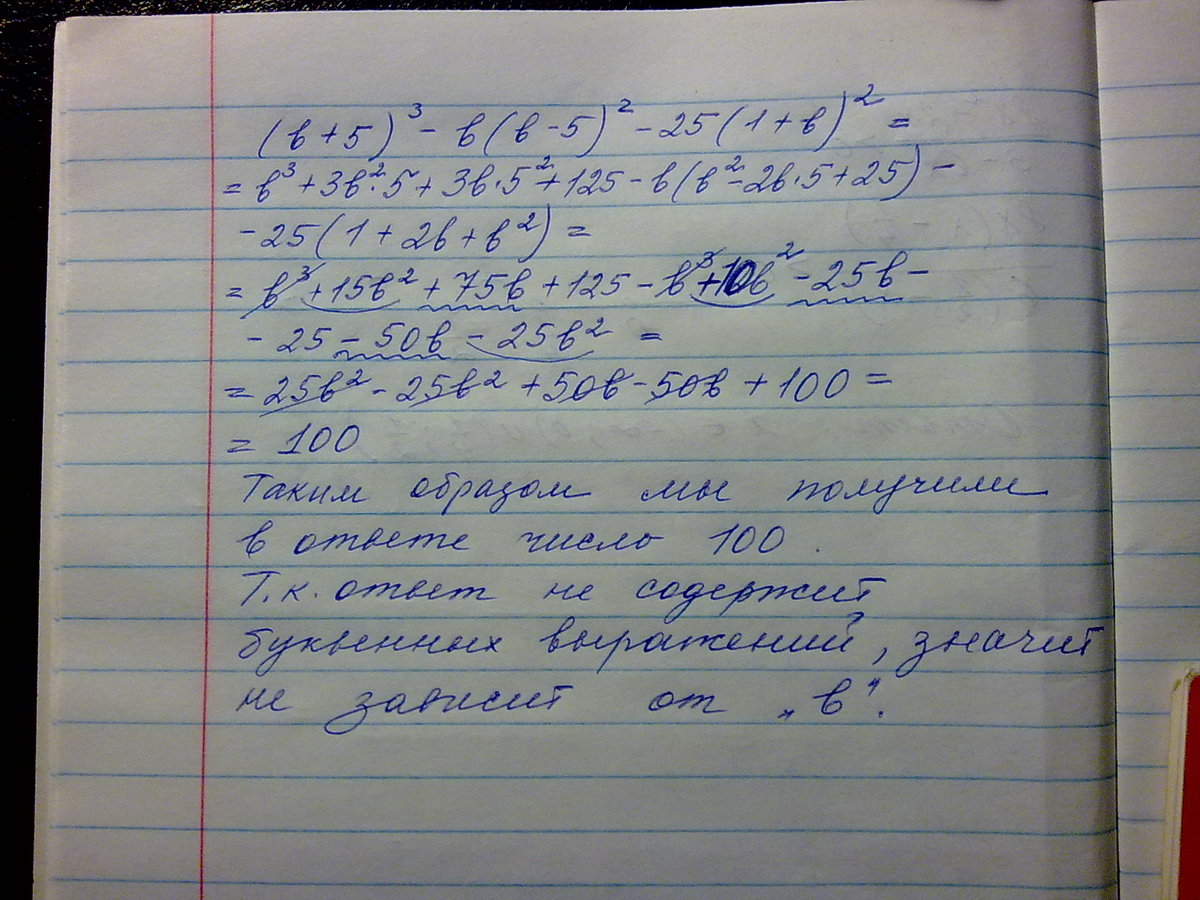 (в+5)³ - в(в-5)² - 25(1+в)² =
= в³ + 3в²·5 + 3в·5² + 125 - в(в² - 2в·5 + 25) -
- 25(1 + 2в + в²) =
= в³ + 15в² + 75в + 125 - в³ + 10в² - 25в -
- 25 - 50в - 25в² =
= 25в² - 25в² + 50в - 50в + 100 =
= 100
Таким образом мы получили
в ответе число 100.
Т.к. ответ не содержит
буквенных выражений, значит
не зависит от „в“.